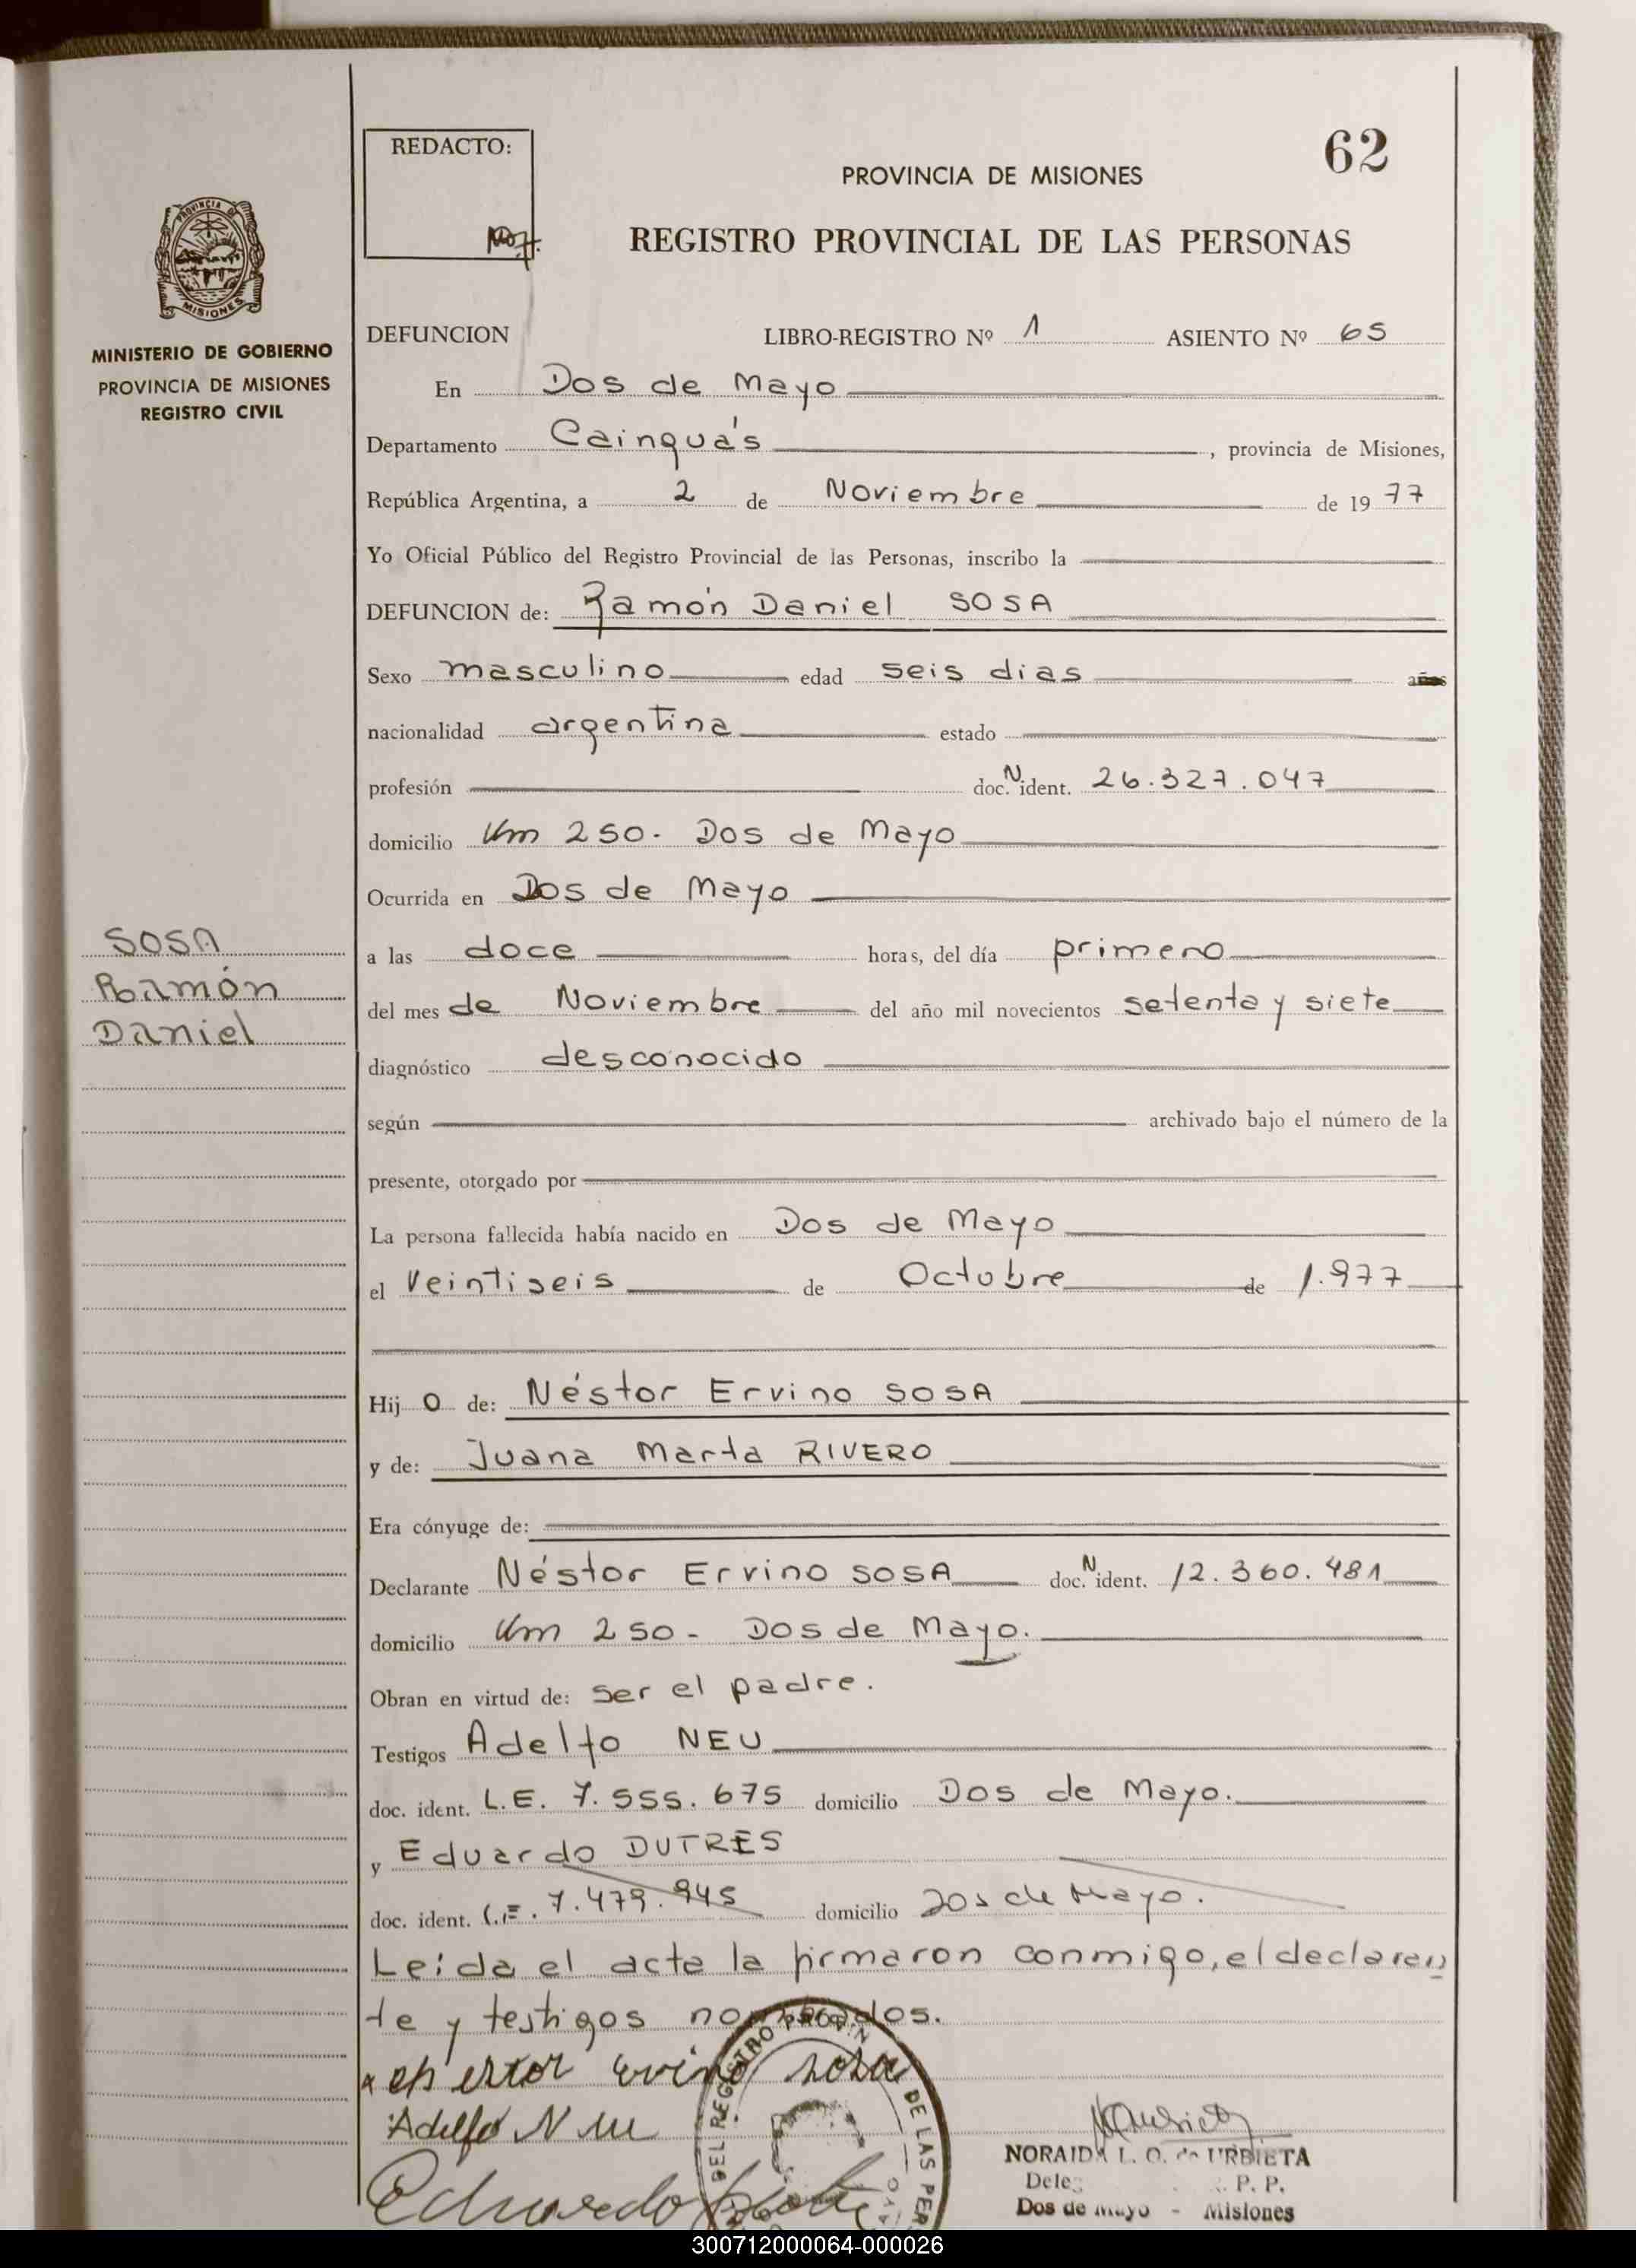 REDACTO:
62
PROVINCIA DE MISIONES
REGISTRO PROVINCIAL DE LAS PERSONAS
PROVINCIA DE
MISIONES
MINISTERIO DE GOBIERNO
PROVINCIA DE MISIONES
REGISTRO CIVIL
DEFUNCION LIBRO-REGISTRO Nº 1 ASIENTO Nº 65
En Dos de Mayo
Departamento Cainguás, provincia de Misiones,
República Argentina, a 2 de Noviembre de 1977
Yo Oficial Público del Registro Provincial de las Personas, inscribo la
DEFUNCION de: Ramón Daniel SOSA
Sexo masculino edad seis dias años
nacionalidad argentina estado
profesión doc. N ident. 26.327.047
domicilio Km 250. Dos de Mayo
Ocurrida en Dos de Mayo
SOSA
Ramón
Daniel
a las doce horas, del día primero
del mes de Noviembre del año mil novecientos setenta y siete
diagnóstico desconocido
según archivado bajo el número de la
presente, otorgado por
La persona fallecida había nacido en Dos de Mayo
el Veintiseis de Octubre de 1.977
Hij o de: Néstor Ervino SOSA
y de: Juana Marta RIVERO
Era cónyuge de:
Declarante Néstor Ervino SOSA doc. N ident. 12.360.481
domicilio Km 250 - Dos de Mayo.
Obran en virtud de: ser el padre.
Testigos Adelfo NEU
doc. ident. L.E. 7.555.675 domicilio Dos de Mayo.
y Eduardo DUTRES
doc. ident. L.E. 7.479.945 domicilio Dos de Mayo.
Leída el acta la firmaron conmigo, el declaran
te y testigos nombrados.
Adelfo Neu
Eduardo
DEL REGISTRO PROVIN DE LAS PER
NORAIDA L. O. de URBIETA
P. P.
Dos de Mayo - Misiones
300712000064-000026